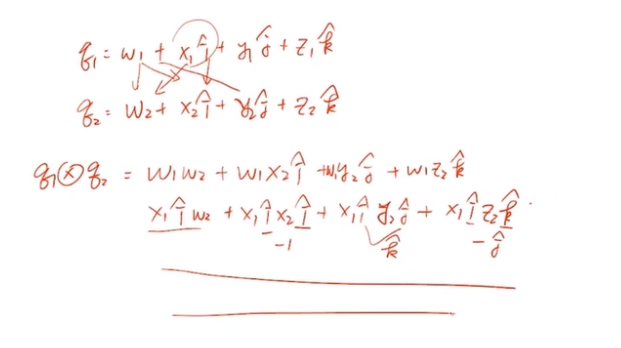 q₁ = w₁ + x₁î + y₁ĵ + z₁k̂
q₂ = w₂ + x₂î + y₂ĵ + z₂k̂
q₁ ⊗ q₂ = w₁w₂ + w₁x₂î + w₁y₂ĵ + w₁z₂k̂
x₁îw₂ + x₁îx₂î + x₁îy₂ĵ + x₁îz₂k̂
-1 k̂ -ĵ